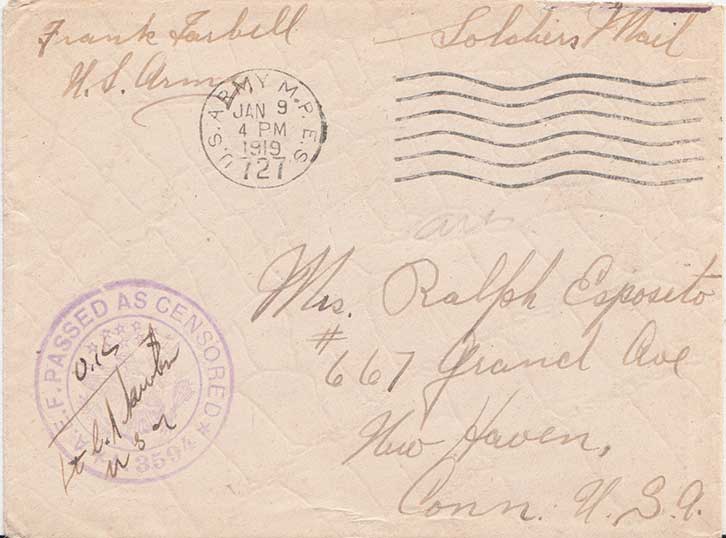 Frank Tarbell
U.S. Army
Soldiers Mail
U.S. ARMY M.P.E.S.
JAN 9
4 PM
1919
727
Mrs. Ralph Esposito
# 667 Grand Ave
New Haven,
Conn. U.S.A.
A.E.F. PASSED AS CENSORED
3594
O.K.